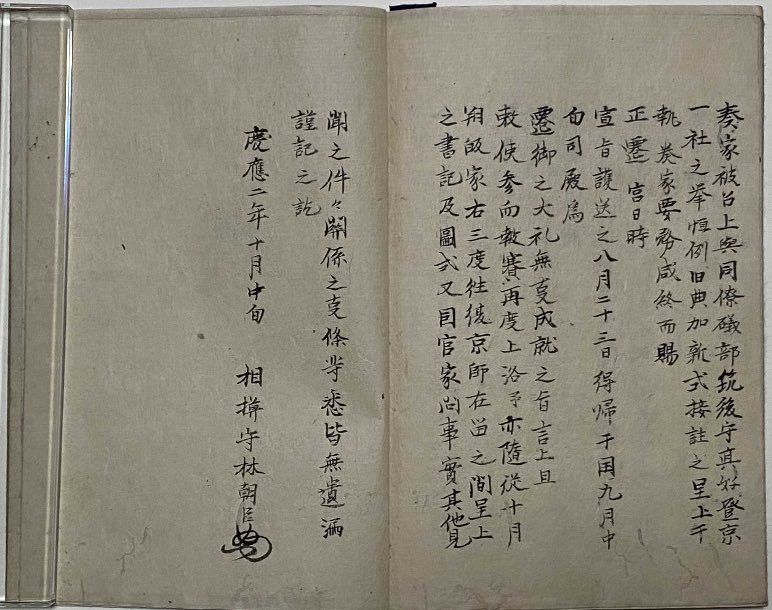 奏家被召上與同僚礒部筑後守真好登京
一社之挙恒例旧典加新式接註之呈上于
執奏家要務咸終而賜
正遷宮日時
宣旨護送之八月二十三日得帰于国九月中
向司殿為
遷御之大礼無㕝成就之旨言上且
敕使参向報賽再度上洛予亦随従十月
朔皈家右三度往復京師在留之間呈上
之書記及圖式又因官家尚事實其他見
聞之件々關係之㕝條等悉皆無遺漏
謹記之訖
慶應二年十月中旬
相摸守林朝臣